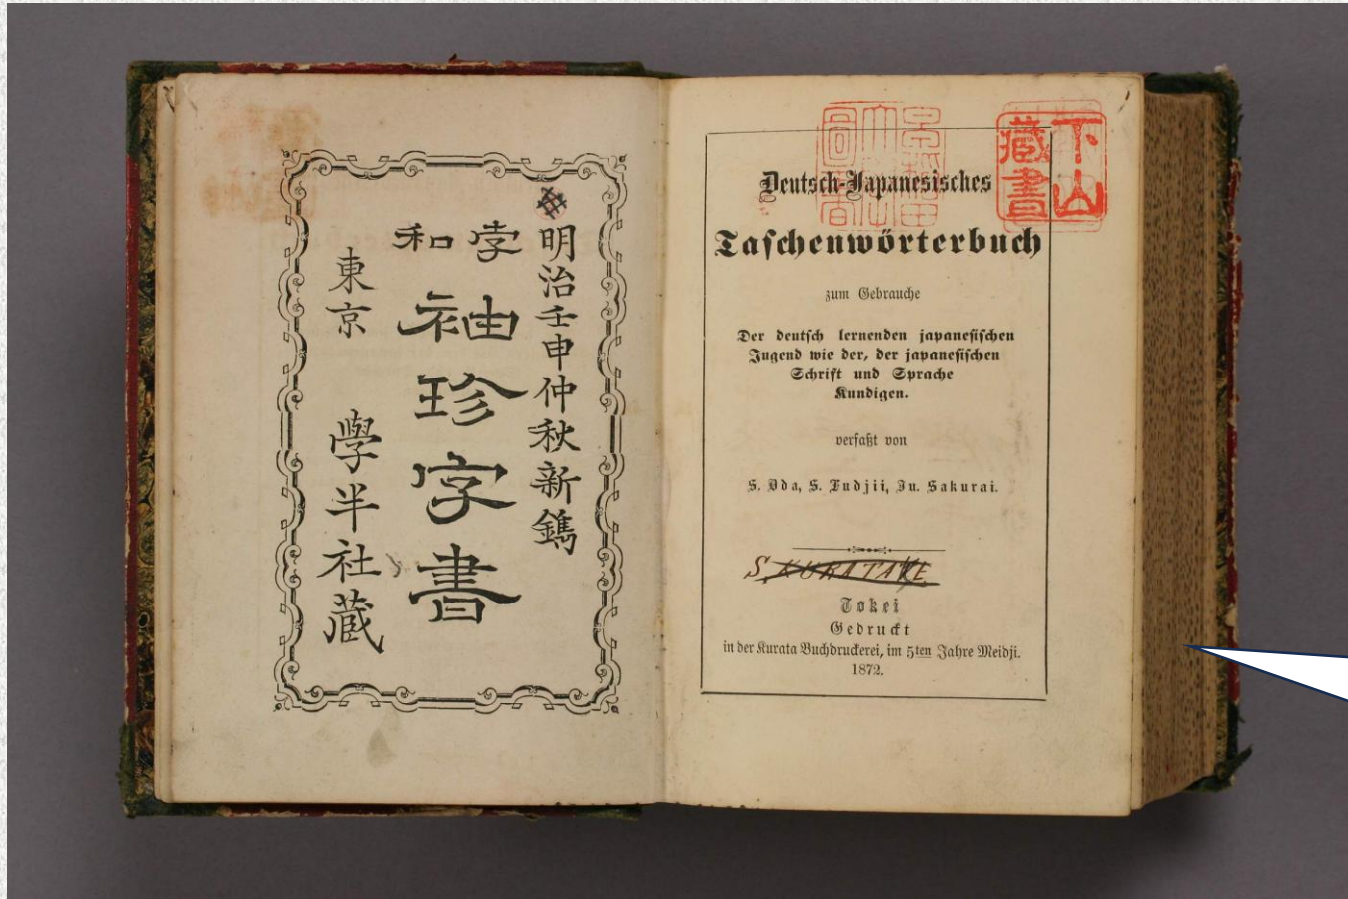 明治壬申仲秋新鐫
孛和
袖珍字書
東京 學半社蔵
下山
藏書
Deutsch-Japanesisches
Taschenwörterbuch
zum Gebrauche
Der deutsch lernenden japanesischen
Jugend wie der, der japanesischen
Schrift und Sprache
Kundigen.
verfaßt von
S. Oda, S. Fudjii, Ju. Sakurai.
Tokei
Gedruckt
in der Kurata Buchdruckerei, im 5ten Jahre Meidji.
1872.